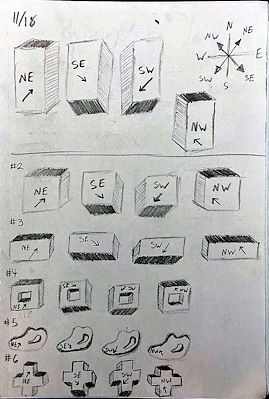 11/18
N
NW NE
W E
SW SE
S
NE SE SW NW
#2
NE SE SW NW
#3
NE SE SW NW
#4
NE SE SW NW
#5
NE SE SW NW
#6
NE SE SW NW